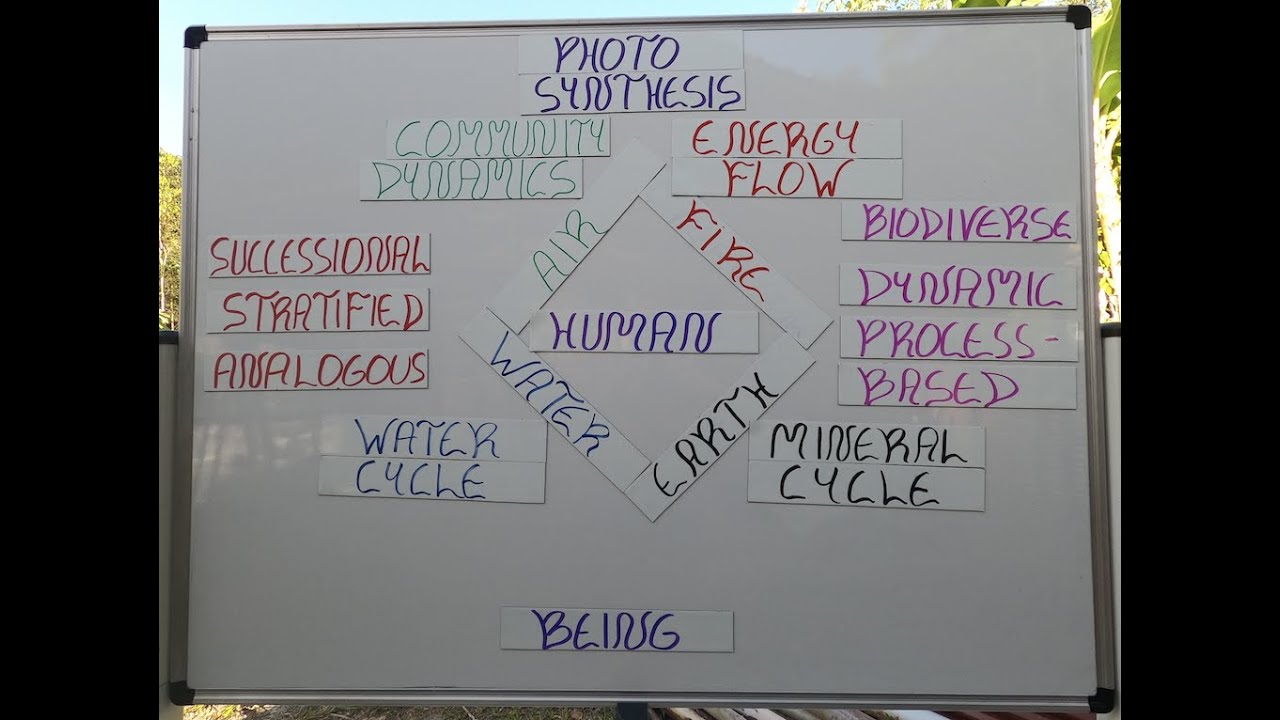 PHOTO
SYNTHESIS
COMMUNITY
DYNAMICS
ENERGY
FLOW
AIR
FIRE
BIODIVERSE
SUCCESSIONAL
STRATIFIED
ANALOGOUS
DYNAMIC
PROCESS-
BASED
HUMAN
WATER
EARTH
WATER
CYCLE
MINERAL
CYCLE
BEING